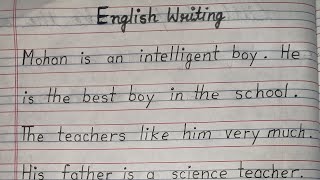 English Writing
Mohon is an intelligent boy. He
is the best boy in the school.
The teachers like him very much.
His father is a science teacher.